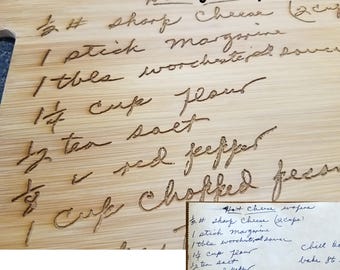 ½ # sharp Cheese (2 cups
1 stick Margarine
1 tbls worchestershl sauce
1¼ cup flour
½ tea salt
⅛ " red pepper
1 cup chopped pecans
Hot Cheese wafers
½ # sharp Cheese (2 cups)
1 stick Margarine
1 tbls worchestershl sauce
1¼ cup flour
chill
½ tea salt
bake